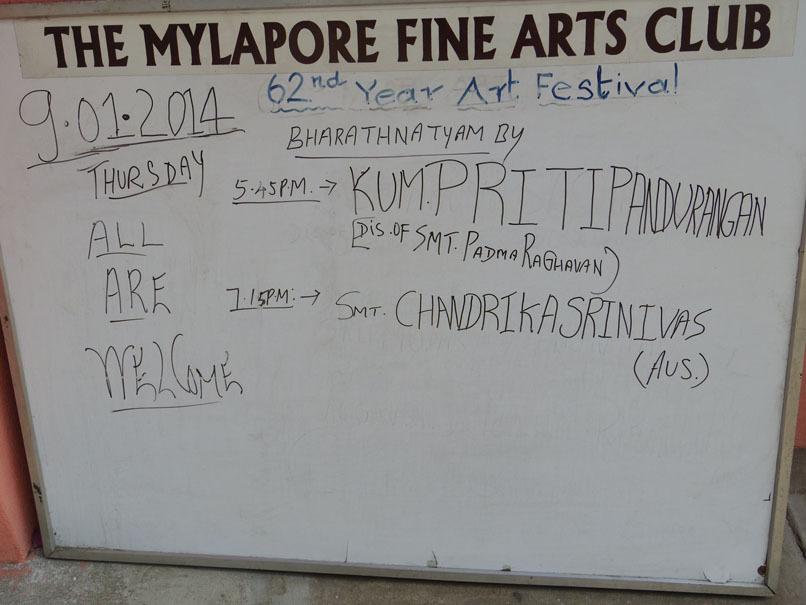 THE MYLAPORE FINE ARTS CLUB
62nd Year Art Festival
9.01.2014
THURSDAY
ALL
ARE
WELCOME
BHARATHNATYAM BY
5.45P.M. → KUM. PRITI PANDURANGAN
(DIS. OF SMT. PADMA RAGHAVAN)
7.15P.M: → SMT. CHANDRIKA SRINIVAS
(AUS.)